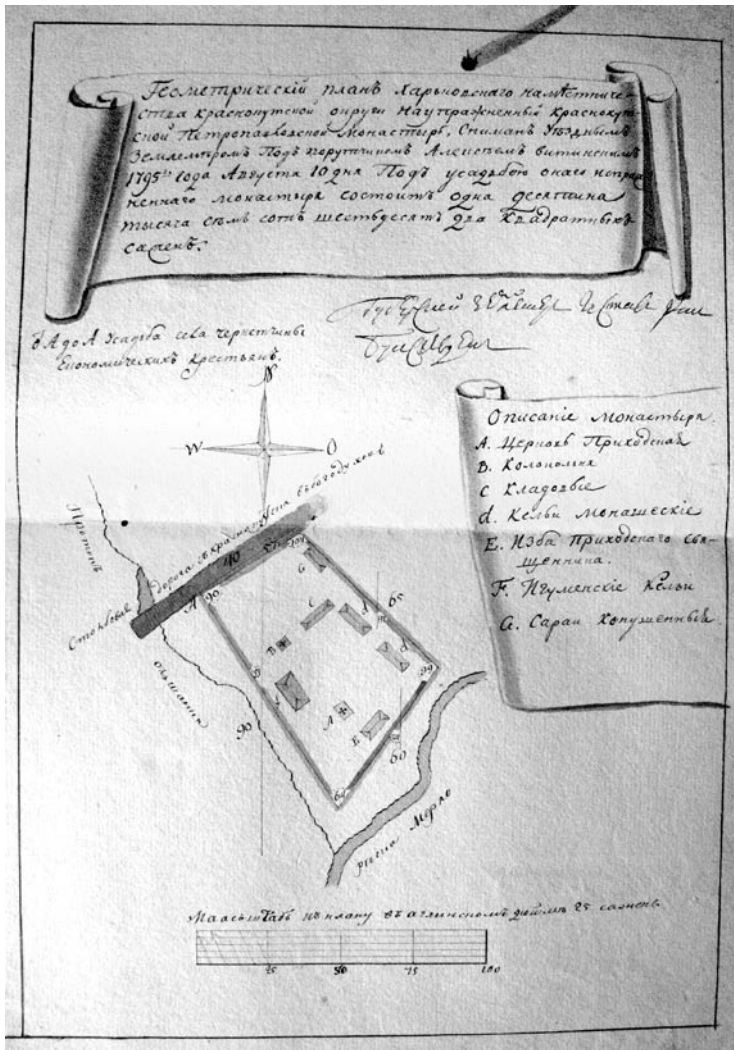 Геометрическій планъ Харьковскаго намѣстниче-
ства краснокутской округи Наупражненный Краснокут-
ской Петропавловской Монастырь, Сниманъ Уѣзднымъ
Землемѣромъ Подъ порутчикомъ Алексѣемъ
1795го Года Августа 10 дня Подъ усадьбою онаго неупраж-
ненного монастыря состоитъ одна десятина
тысяча сѣмъ сотъ шестьдесятъ два Квадратныхъ
саженъ.
Губернской
ѿ А до А Усадьба села чернетчины
Економическихъ крестьянъ.
N
W
O
Описаніе монастыря.
А. Церковь Приходская
B. Колокольня
C Кладовые
d. Кельи монашескіе
E. Изба приходскаго свя-
щенника.
F. Игуменскіе Кельи
G. Сараи Конушенныя.
Столбовая дорога съ краснокутска въ богодуховъ
40
90
G
65
C
d
B
d
A
E
90
60
рѣчка Мерло
Маасштабъ къ плану въ аглинскомъ дюймѣ 25 саженъ.
25
50
75
100